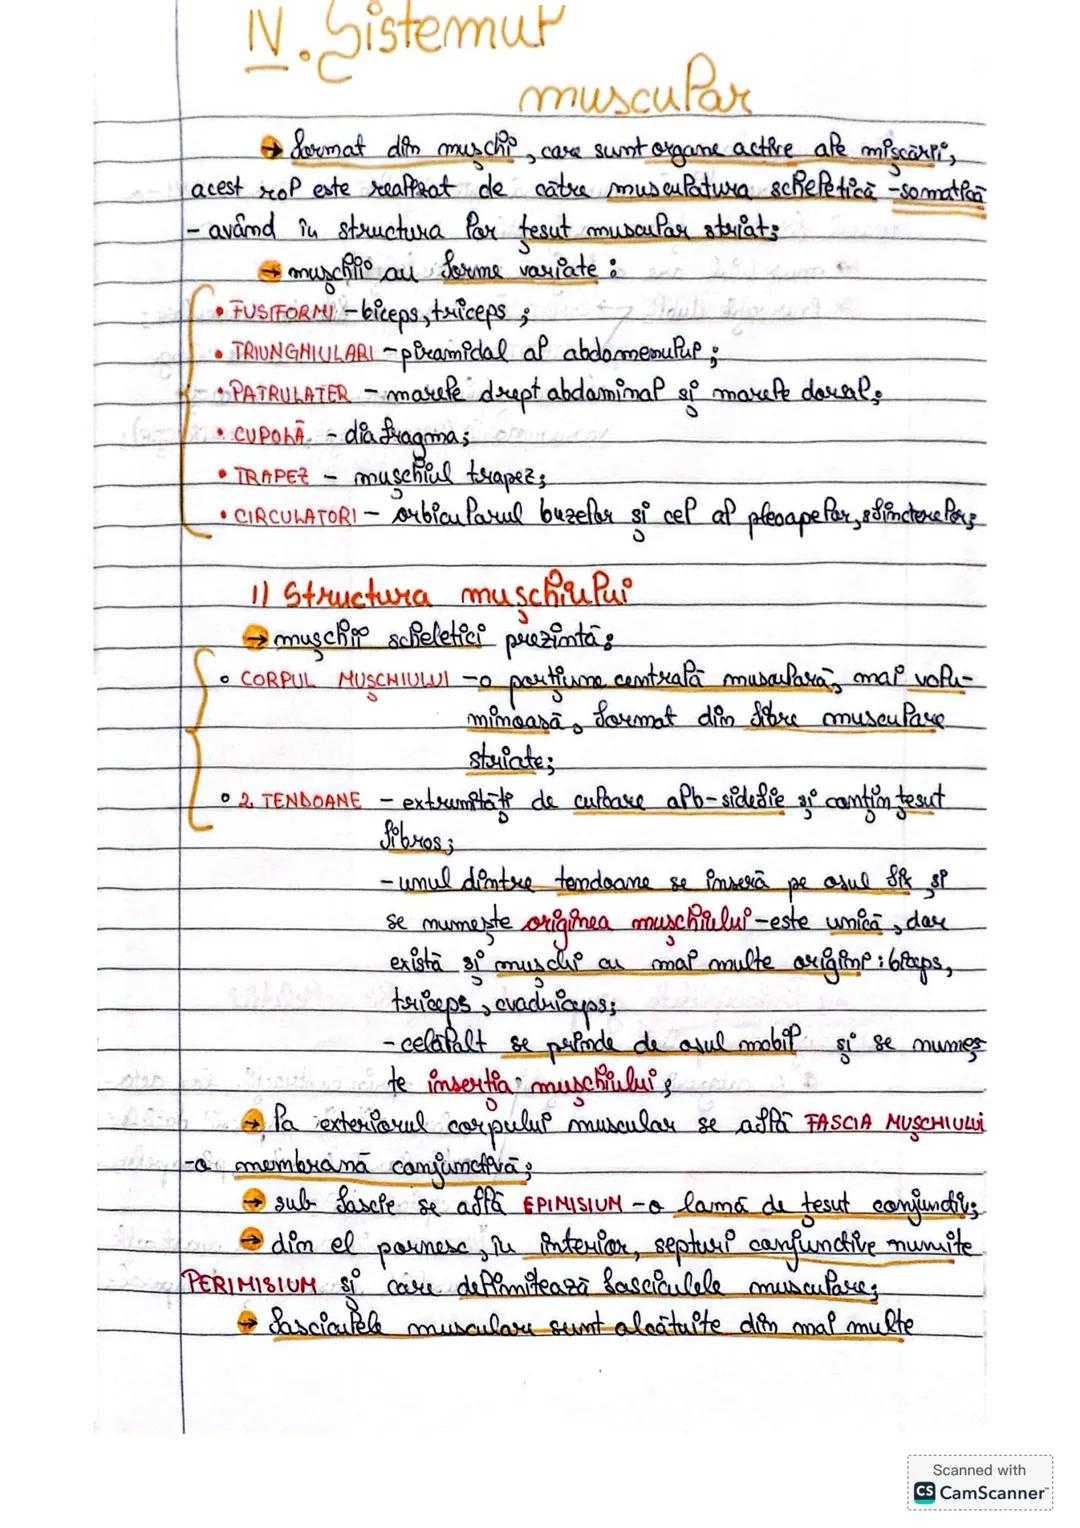 IV. Sistemul
muscular
→ format din mușchi, care sunt organe active ale mișcării,
acest rol este realizat de către musculatura scheletică - somatică
- având în structura lor țesut muscular striat;
→ mușchii au forme variate:
• FUSIFORMI - biceps, triceps;
• TRIUNGHIULARI - piramidal al abdomenului;
• PATRULATER - marele drept abdominal și marele dorsal;
• CUPOLĂ - diafragma;
• TRAPEZ - mușchiul trapez;
• CIRCULATORI - orbicularul buzelor și cel al pleoapelor, sfincterelor;
1) Structura mușchiului
→ mușchii scheletici prezintă:
• CORPUL MUȘCHIULUI - o porțiune centrală musculară, mai volu-
minoasă, format din fibre musculare
striate;
• 2 TENDOANE - extremități de culoare alb-sidefie și conțin țesut
fibros;
- unul dintre tendoane se inseră pe osul fix și
se numește originea mușchiului - este unică, dar
există și mușchi cu mai multe origini: biceps,
triceps, cvadriceps;
- celălalt se prinde de osul mobil și se numeș
te inserția mușchiului;
→ la exteriorul corpului muscular se află FASCIA MUȘCHIULUI
- o membrană conjunctivă;
→ sub fascie se află EPIMISIUM - o lamă de țesut conjunctiv;
→ din el pornesc, în interior, septuri conjunctive numite
PERIMISIUM și care delimitează fasciculele musculare;
→ fasciculele musculare sunt alcătuite din mai multe
Scanned with
CS CamScanner